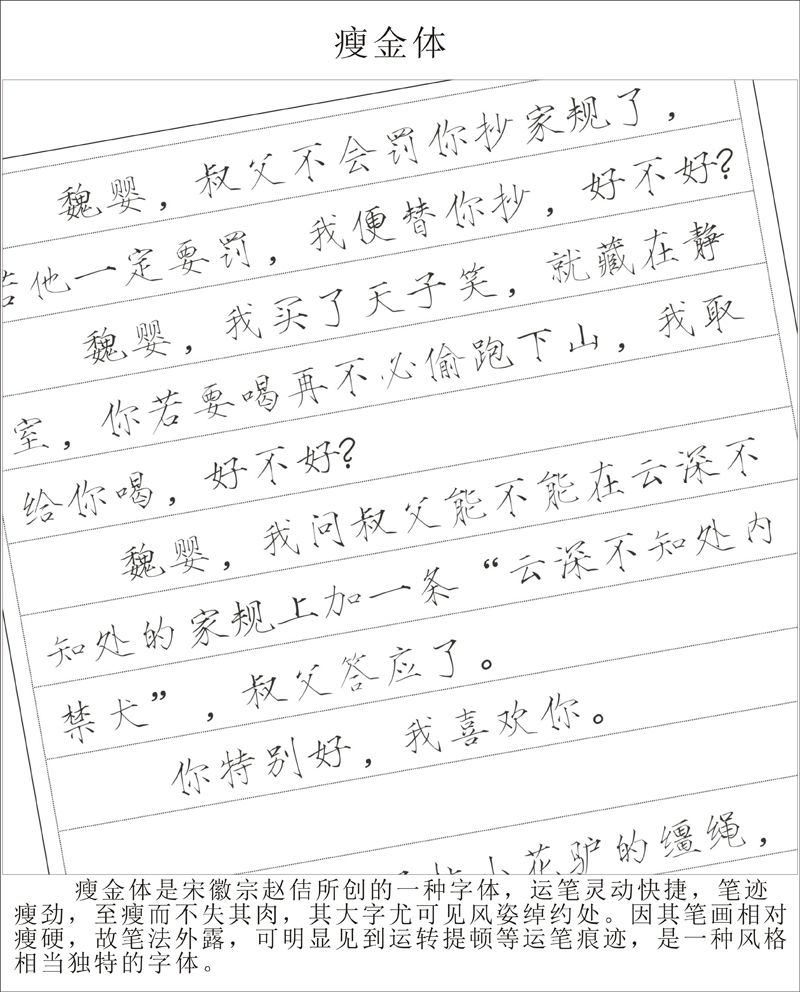 瘦金体
魏婴，叔父不会罚你抄家规了，
若他一定要罚，我便替你抄，好不好？
魏婴，我买了天子笑，就藏在静
室，你若要喝再不必偷跑下山，我取
给你喝，好不好？
魏婴，我问叔父能不能在云深不
知处的家规上加一条“云深不知处内
禁犬”，叔父答应了。
你特别好，我喜欢你。
小花驴的缰绳，
瘦金体是宋徽宗赵佶所创的一种字体，运笔灵动快捷，笔迹
瘦劲，至瘦而不失其肉，其大字尤可见风姿绰约处。因其笔画相对
瘦硬，故笔法外露，可明显见到运转提顿等运笔痕迹，是一种风格
相当独特的字体。